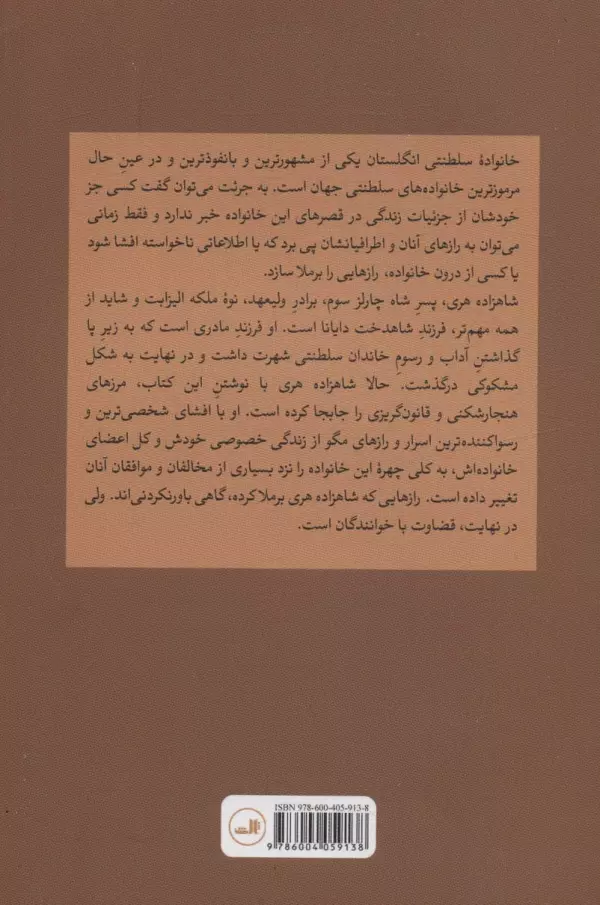 خانوادهٔ سلطنتی انگلستان یکی از مشهورترین و بانفوذترین و در عینِ حال
مرموزترین خانواده‌های سلطنتی جهان است. به جرئت می‌توان گفت کسی جز
خودشان از جزئیات زندگی در قصرهای این خانواده خبر ندارد و فقط زمانی
می‌توان به رازهای آنان و اطرافیانشان پی برد که یا اطلاعاتی ناخواسته افشا شود
یا کسی از درون خانواده، رازهایی را برملا سازد.
شاهزاده هری، پسرِ شاه چارلز سوم، برادرِ ولیعهد، نوهٔ ملکه الیزابت و شاید از
همه مهم‌تر، فرزندِ شاهدخت دایانا است. او فرزندِ مادری است که به زیرِ پا
گذاشتنِ آداب و رسومِ خاندان سلطنتی شهرت داشت و در نهایت به شکل
مشکوکی درگذشت. حالا شاهزاده هری با نوشتنِ این کتاب، مرزهای
هنجارشکنی و قانون‌گریزی را جابجا کرده است. او با افشای شخصی‌ترین و
رسواکننده‌ترین اسرار و رازهای مگو از زندگی خصوصی خودش و کل اعضای
خانواده‌اش، به کلی چهرهٔ این خانواده را نزد بسیاری از مخالفان و موافقان آنان
تغییر داده است. رازهایی که شاهزاده هری برملا کرده، گاهی باورنکردنی‌اند. ولی
در نهایت، قضاوت با خوانندگان است.
ISBN 978-600-405-913-8
9 786004 059138